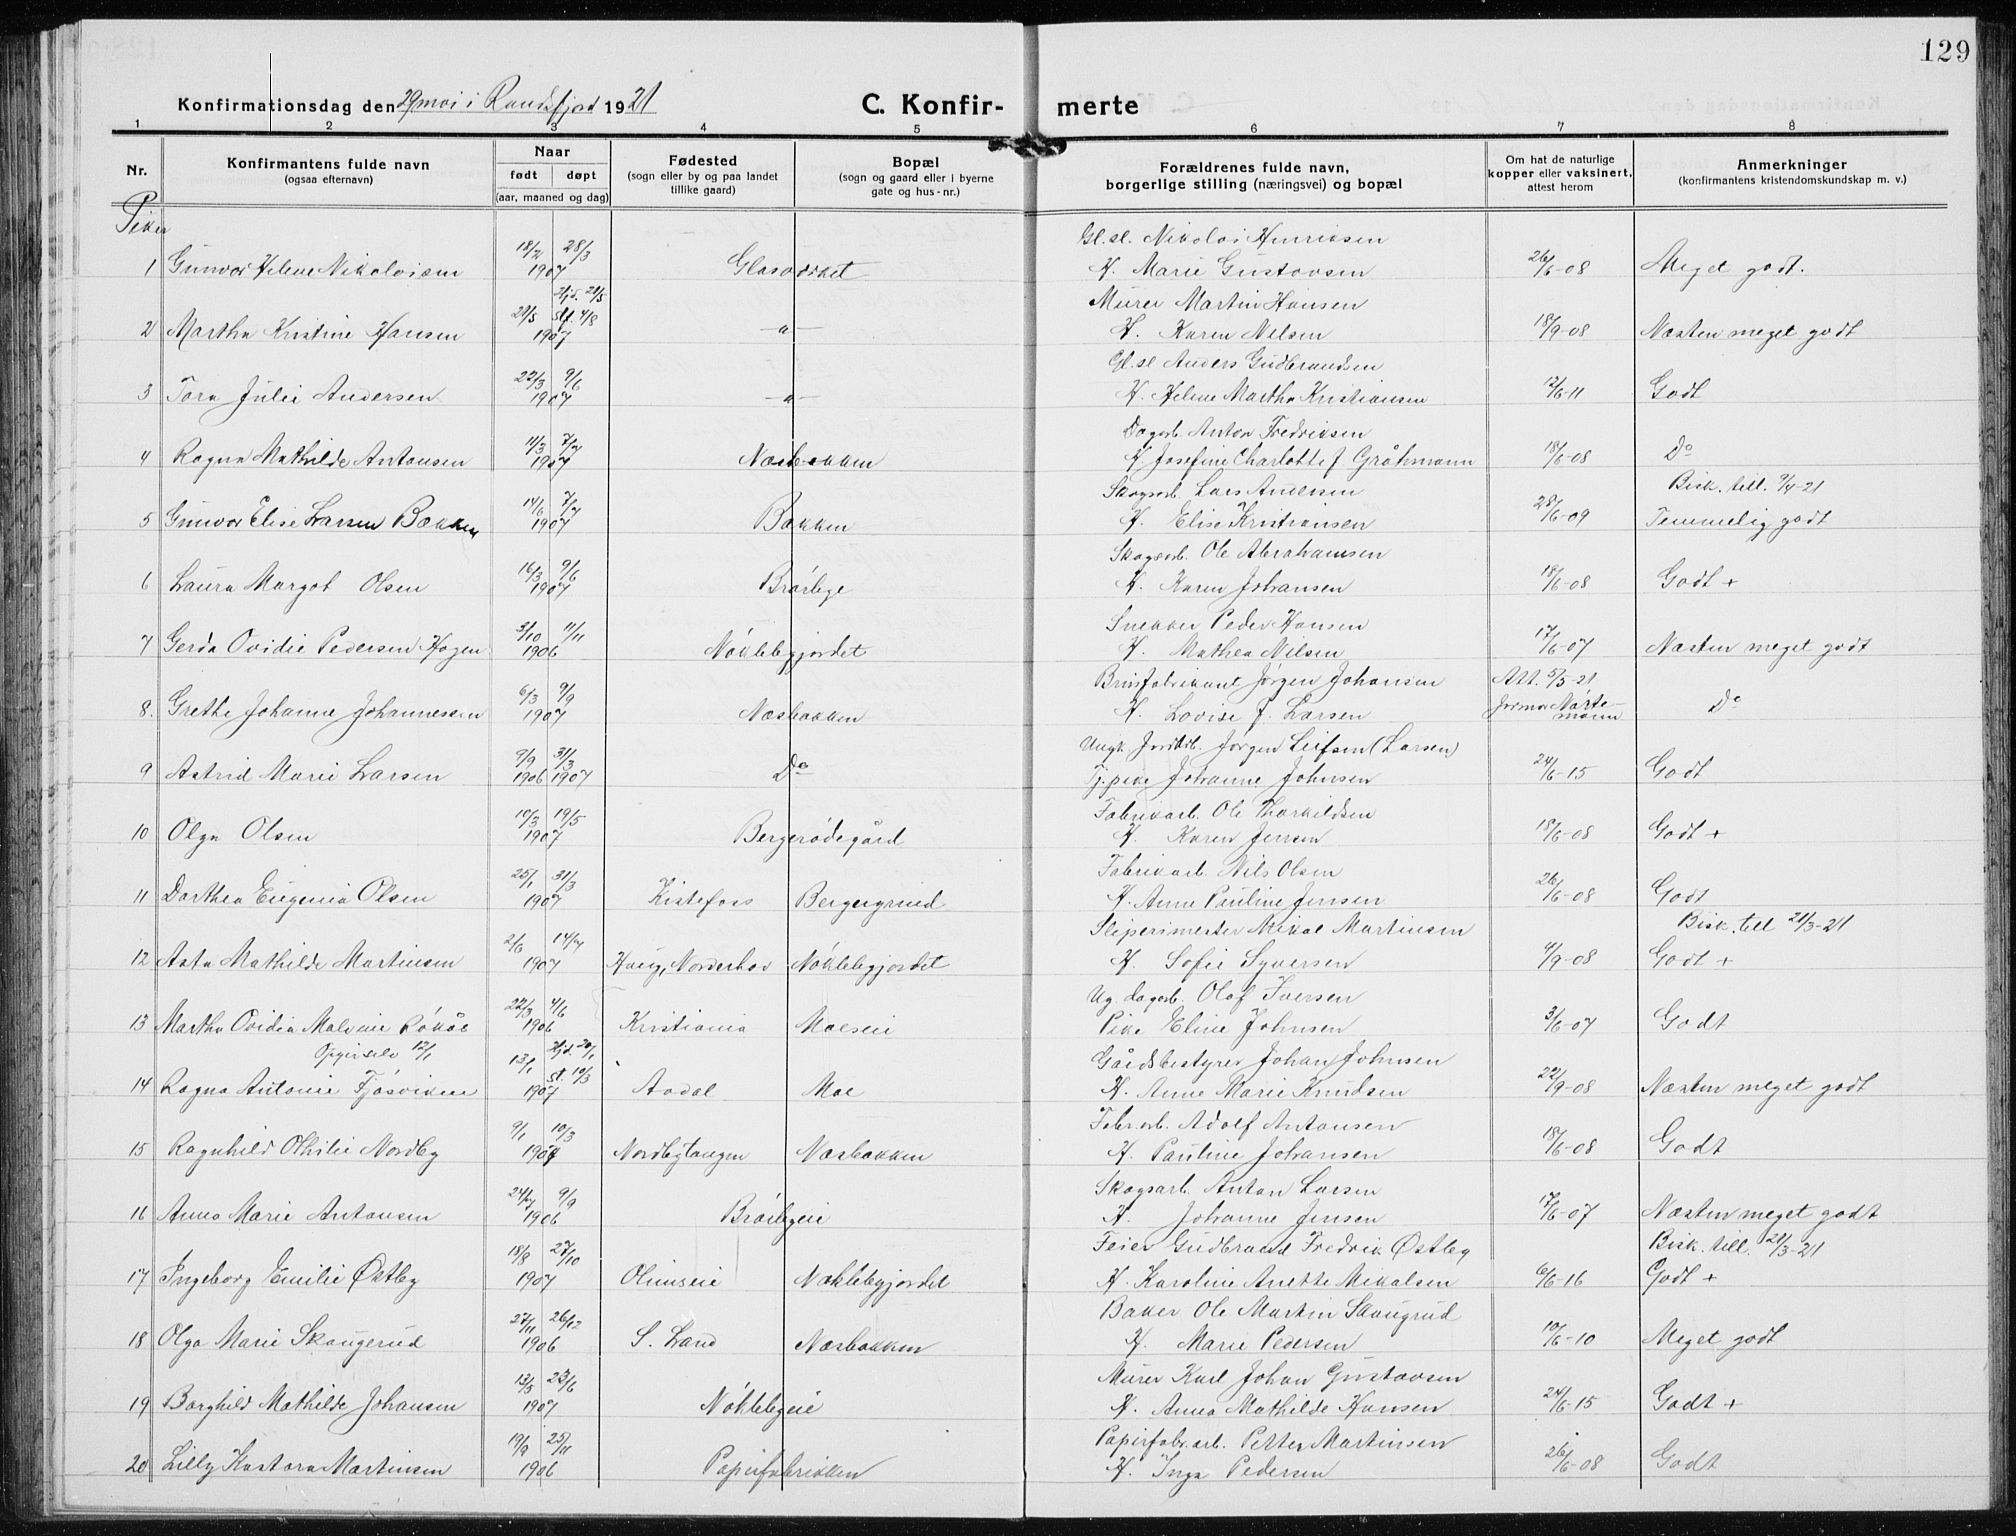 129
Konfirmationsdag den 29 mai i Randsfjord 1921 C. Konfirmerte
1 2 3 4 5 6 7 8
Nr. Konfirmantens fulde navn (ogsaa efternavn) Naar født døpt (aar, maaned og dag) Fødested (sogn eller by og paa landet tillike gaard) Bopæl (sogn og gaard eller i byerne gate og hus-nr.) Forældrenes fulde navn, borgerlige stilling (næringsvei) og bopæl Om hat de naturlige kopper eller vaksinert, attest herom Anmerkninger (konfirmantens kristendomskundskap m. v.)
Piker
18/2 28/3 Gl.sl. Nikolai Henriksen
1 Gunvor Helene Nikolaisen 1907 Glasverket H. Marie Gustavsen 26/6-08 Meget godt.
21/5 Hjd. 21/5 st. 4/8 Murer Martin Hansen
2 Martha Kristine Hansen 1907 -"- H. Karen Nilsen 18/9-08 Næsten meget godt
22/3 9/6 Gl.sl Anders Gudbrandsen
3 Tora Julie Andersen 1907 -"- H. Helene Martha Kristiansen 12/6-11 Godt
11/3 7/7 Dagarb. Anton Fredriksen
4 Ragna Mathilde Antonsen 1907 Næsbakken H Josefine Charlotte J Gråhmann 18/6-08 Do
14/6 7/7 Skogsarb. Lars Andersen Bisk. till. 9/4-21
5 Gunvor Elise Larsen Bakken 1907 Bakken H. Elise Kristiansen 28/6-09 Temmelig godt
16/3 9/6 Skogsarb. Ole Abrahamsen
6 Laura Margot Olsen 1907 Bråtlege H. Karen Johansen 18/6-08 Godt +
3/10 11/11 Snekker Peder Hansen
7 Gerda Ovidie Pedersen Hagen 1906 Nøklebygjordet H. Mathea Nilsen 17/6-07 Næsten meget godt
6/3 9/9 Brusfabrikant Jørgen Johansen Att. 5/5-21
8. Grethe Johanne Johannessen 1907 Næsbakken H. Lovise J. Larsen Jormor Nårtemann Do
9/9 31/3 Ungk. Jordarb. Jørgen Leifsen (Larsen)
9 Astrid Marie Larsen 1906 1907 Do Tj.pike Johanne Johnsen 24/6-15 Godt
10/3 19/5 Fabrikarb. Ole Thorkildsen
10 Olga Olsen 1907 Bergerødegård H. Karen Jensen 18/6-08 Godt +
25/1 31/3 Fabrikarb. Nils Olsen
11 Dorthea Eugenia Olsen 1907 Kistefoss Bergergrind H. Anne Pauline Jensen 26/6-08 Godt
2/6 14/7 Sliperimester Mikal Martinsen Bisk. till 21/3-21
12 Asta Mathilde Martinsen 1907 Haug, Norderhov Nøklebygjordet H. Sofie Syversen 4/9-08 Godt +
22/3 4/6 Ug. dagarb. Olaf Iversen
13 Martha Ovidia Malvine Røkås 1906 Kristiania Moeseie Pike Eline Johnsen 3/6-07 Godt
Opgir selv 12/1 13/1 Hjd. 20/1 st. 10/3 Gårdsbestyrer Johan Johnsen
14 Ragna Antonie Fjøsviken 1907 Aadal Moe H. Anne Marie Knudsen 22/9-08 Næsten meget godt
9/1 10/3 Fabr.arb. Adolf Antonsen
15 Ragnhild Othilie Nordby 1907 Nordbytangen Næsbakken H. Pauline Johansen 18/6-08 Godt
24/7 9/9 Skogsarb. Anton Larsen
16 Anna Marie Antonsen 1906 Bråtbyeie H. Johanne Jensen 17/6-07 Næsten meget godt
18/8 27/10 Feier Gudbrand Fredrik Østby Bisk. till. 21/3-21
17 Ingeborg Emilie Østby 1907 Olimseie Nøklebygjordet H. Karoline Anette Mikalsen 6/6-16 Godt +
27/11 26/12 Baker Ole Martin Skaugrud
18 Olga Marie Skaugerud 1906 S. Land Næsbakken H. Marie Pedersen 10/6-10 Meget godt
13/5 23/6 Murer Karl Johan Gustavsen
19 Borghild Mathilde Johansen 1907 Nøklebyeie H. Anna Mathilde Hansen 24/6-15 Godt +
19/9 25/11 Papirfabr.arb. Petter Martinsen
20 Lilly Kastora Martinsen 1906 Papirfabrikken H. Inga Pedersen 26/6-08 Godt